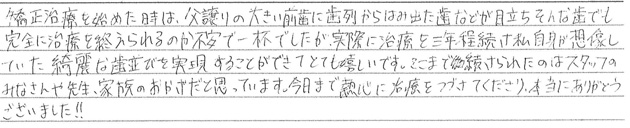 矯正治療を始めた時は、父譲りの大きい前歯に歯列からはみ出た歯などが目立ちそんな歯でも
完全に治療を終えられるのか不安で一杯でしたが、実際に治療を三年程続け私自身が想像し
ていた綺麗な歯並びを実現することができてとても嬉しいです。ここまで続けられたのはスタッフの
みなさんや先生、家族のおかげだと思っています。今日まで熱心に治療をつづけてくださり、本当にありがとう
ございました!!